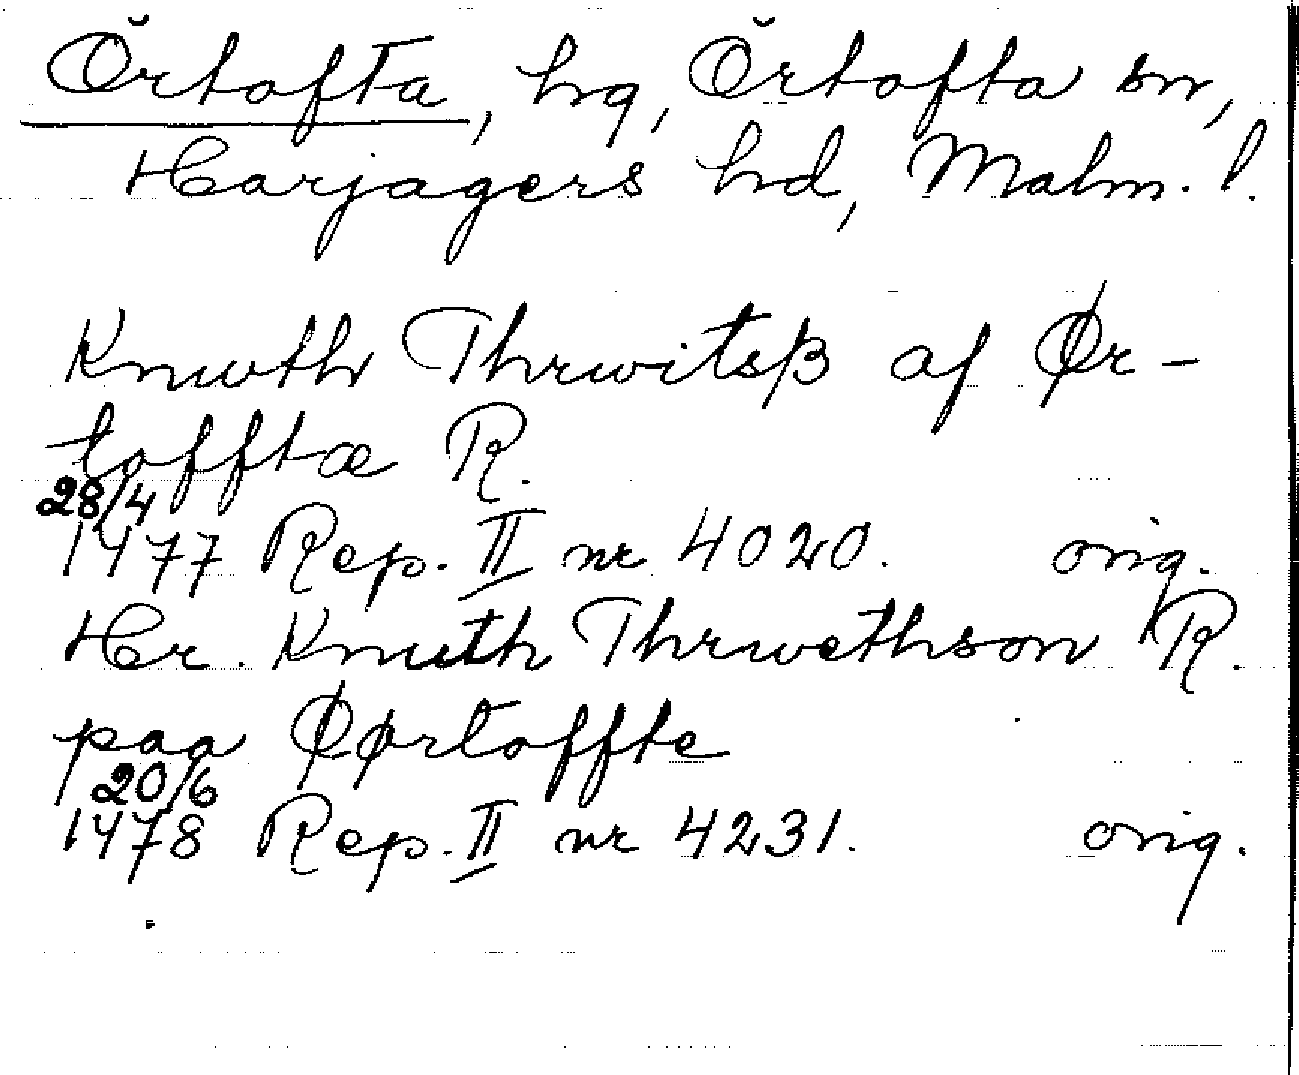 Örtofta, hg, Örtofta sn,
Harjagers hd, Malm. l.
Knwth Thrwitsβ af Ør-
tofftæ R.
28/4
1477 Rep. II nr 4020. orig.
Her. Knuth Thrwethson R.
paa Øørtoffte
20/6
1478 Rep. II nr 4231. orig.